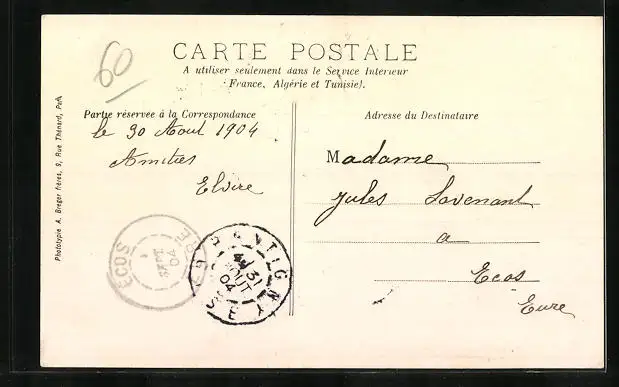 60
CARTE POSTALE
A utiliser seulement dans le Service Interieur
(France, Algérie et Tunisie).
Partie réservée à la Correspondance
Adresse du Destinataire
le 30 Aout 1904
Amitiés
Elvire
Madame
Jules Lavenant
a
Ecos
Eure
ECOS
EURE
1
SEPT
04
ANTIGNY
31
AOUT
04
Phototypie A. Breger frères, 9, Rue Thénard, Paris